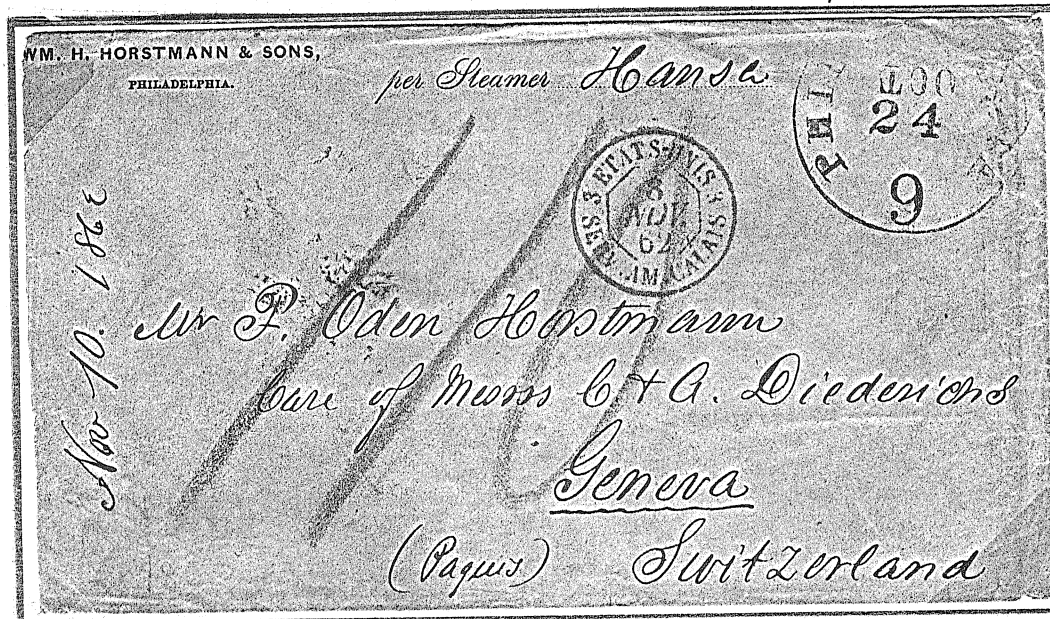 WM. H. HORSTMANN & SONS,
PHILADELPHIA.
per Steamer Hansa
OCT
24
9
3 ETATS-UNIS 3
NOV
62
CALAIS
Nov 10. 1862
Mr F. Oden Horstmann
Care of Messrs C & A. Diederichs
Geneva
(Paquis) Switzerland